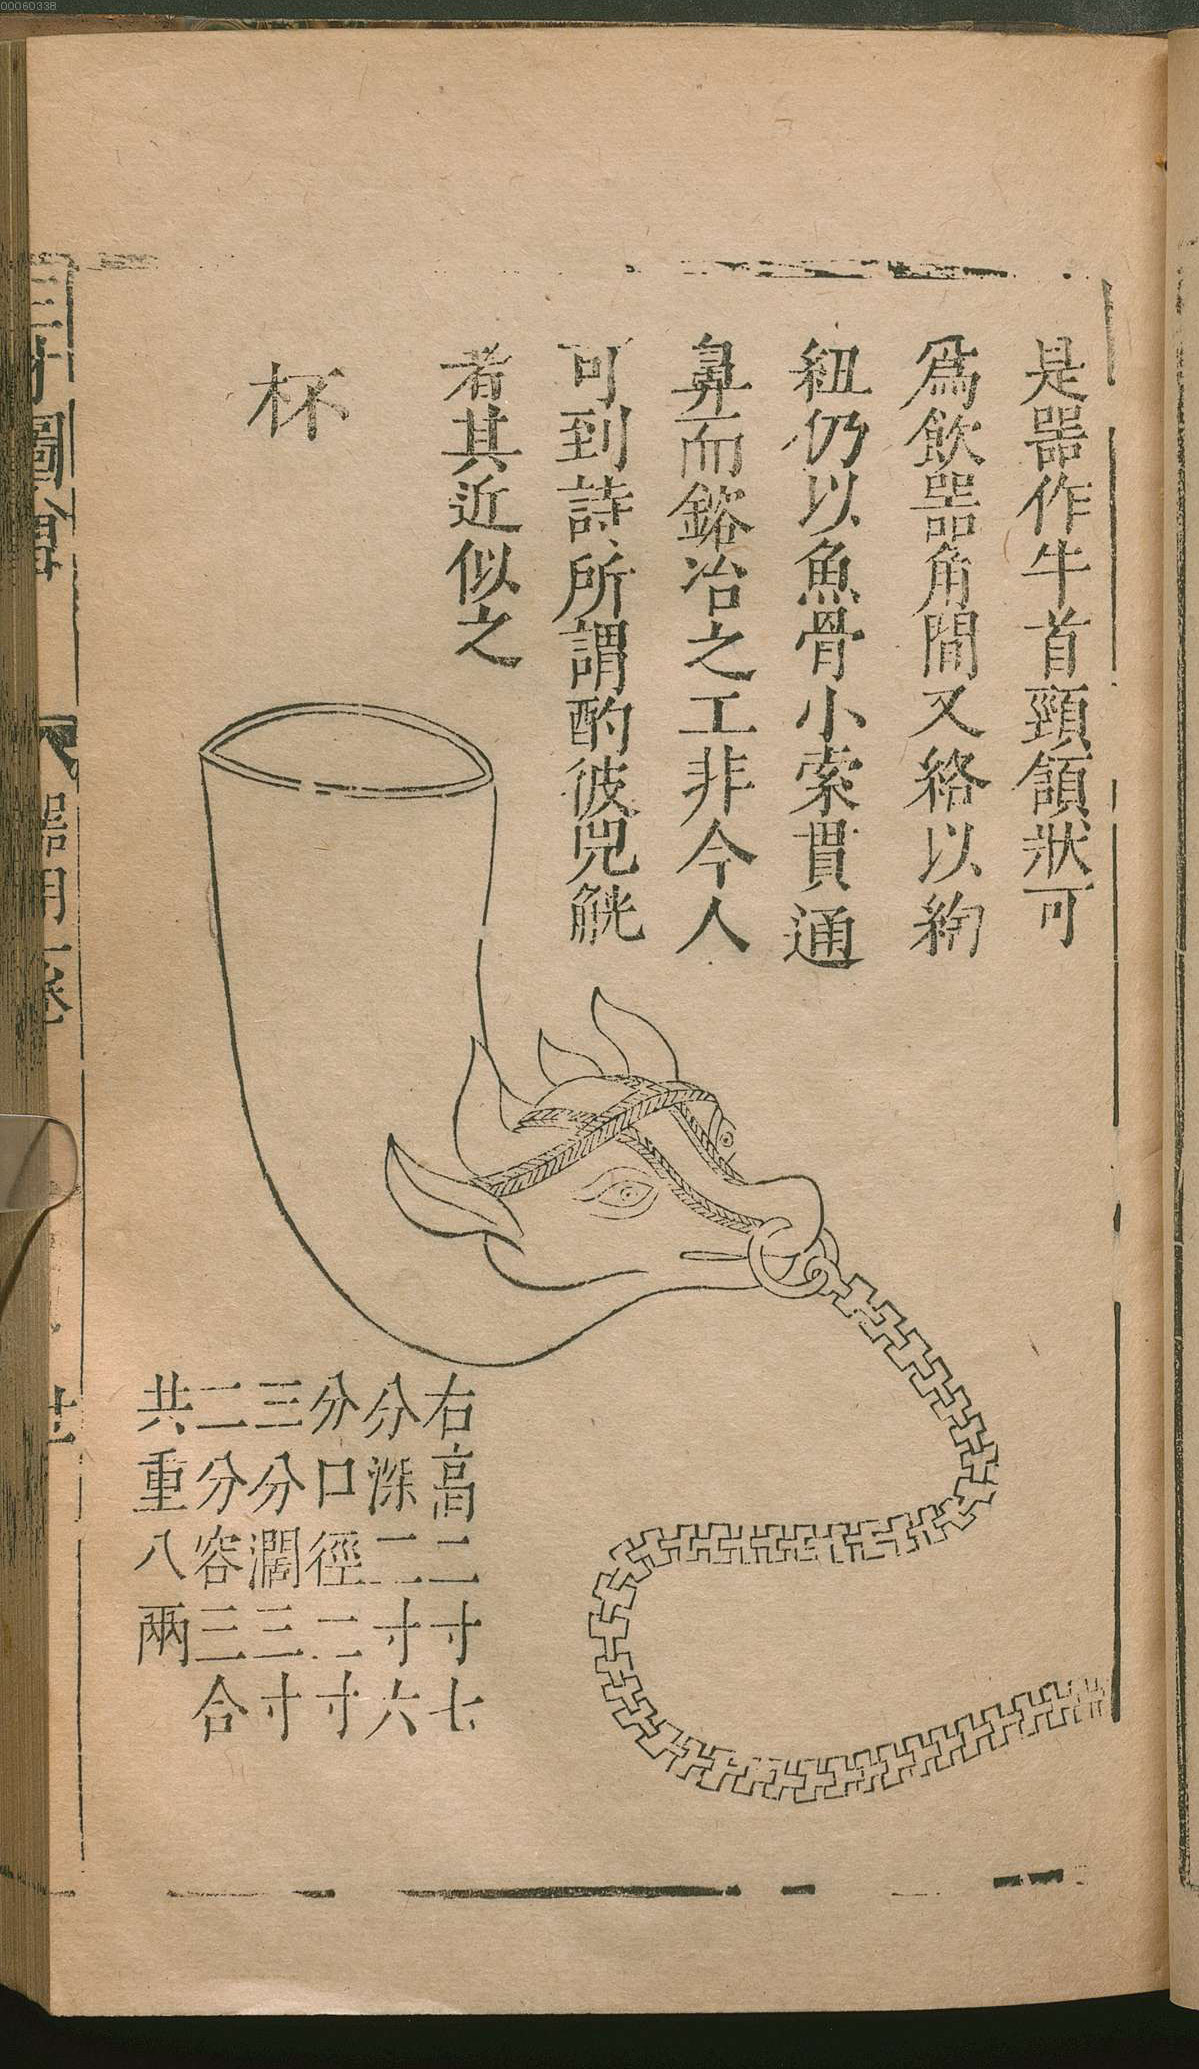 是噐作牛首頸頷狀可
爲飲噐角間又絡以綯
紐仍以魚骨小索貫通
鼻而鎔冶之工非今人
可到詩所謂酌彼兕觥
者其近似之
杯
右高二寸七
分深二寸六
分口徑二寸
三分濶三寸
二分容三合
共重八兩
三才圖會
器用一卷
00060338